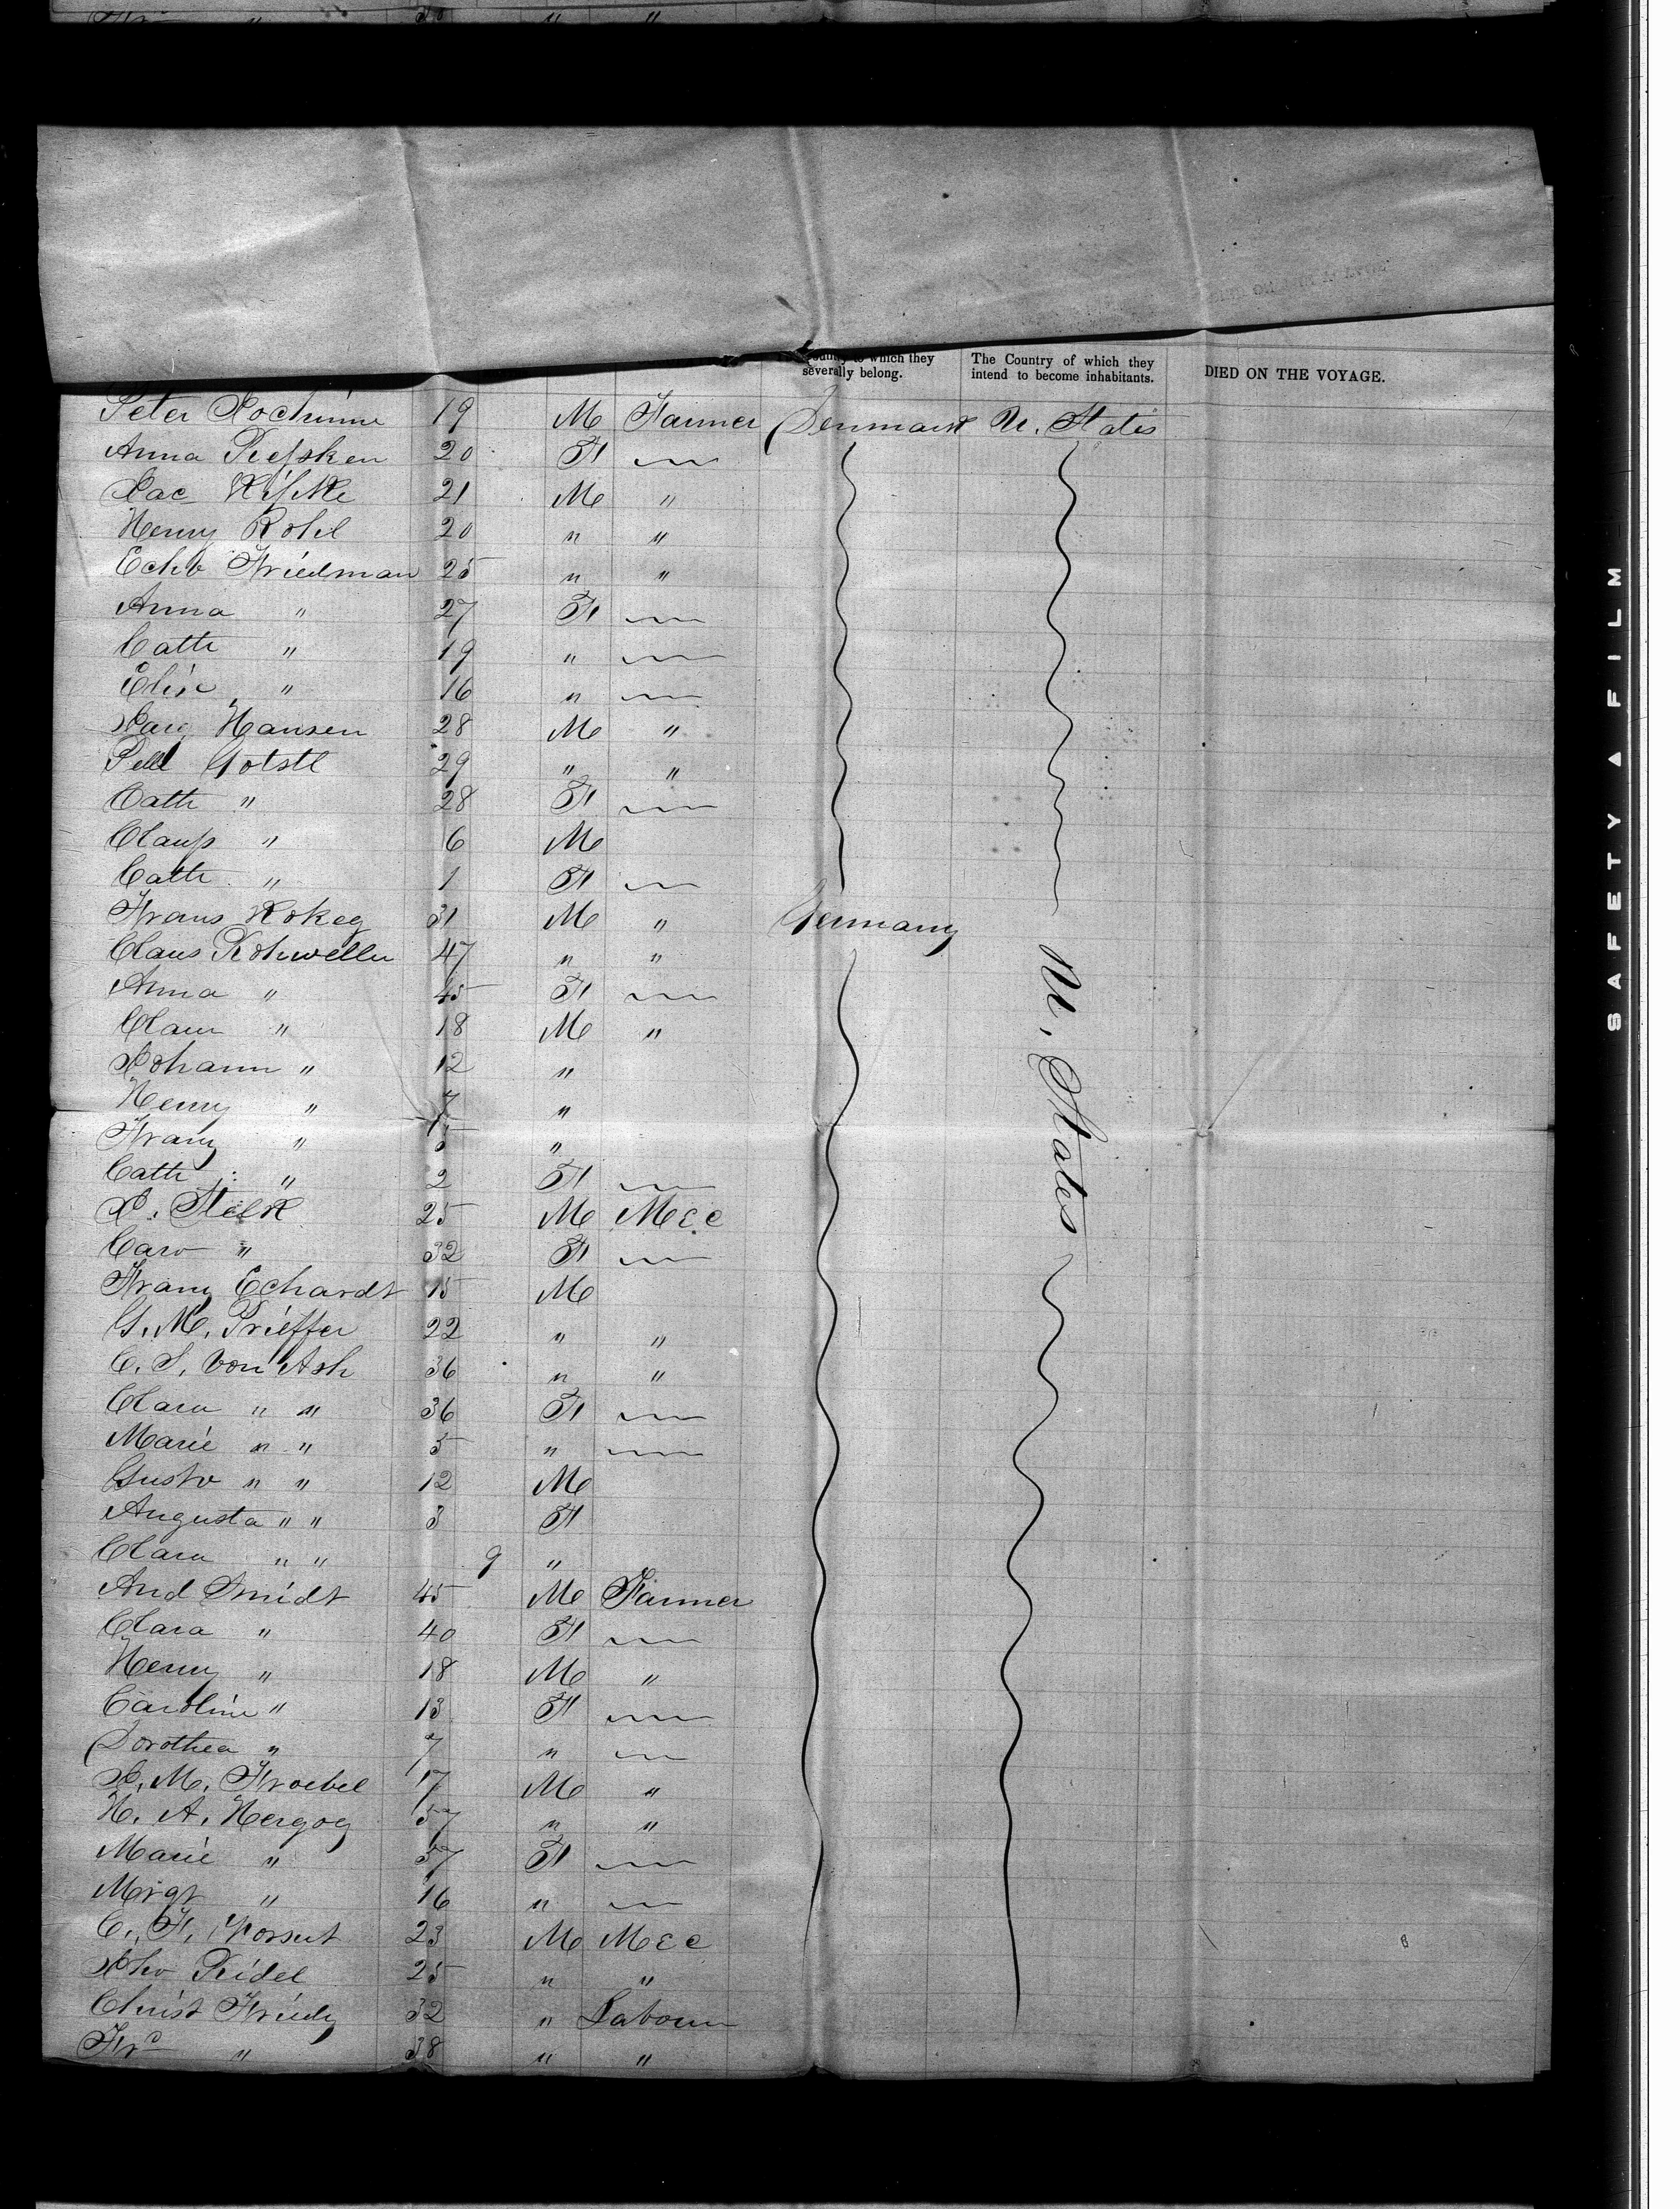 which they
severally belong.
The Country of which they
intend to become inhabitants.
DIED ON THE VOYAGE.
Peter 19 M Farmer Denmark U. States
Anna 20 F
21 M "
Henry Rohl 20 " "
Friedman 25 " "
Anna " 27 F
Cath " 19 "
Elise " 16 "
Hansen 28 M "
29 " "
Cath " 28 F
Clauss " 6 M
Cath " 1 F
Frans 31 M " Germany
Claus Rohweller 47 " "
Anna " 45 F
Claus " 18 M "
Johann " 12 "
Henry " 7 "
Franz " 5 "
Cath " 2 F
U. States
J. 25 M Mec
Caro " 32 F
Franz Echardt 15 M
G. M. Prieffer 22 " "
C. S. von Ash 36 " "
Clara " " 36 F
Marie " " 5 "
Gustv " " 12 M
Augusta " " 3 F
Clara " " 9 "
And Smidt 45 M Farmer
Clara " 40 F
Henry " 18 M "
Caroline " 13 F
Dorothea " 7 "
J. M. Froebel 17 M "
H. A. Herzog 57 " "
Marie " 57 F
Mrgt " 16 "
C. F. 23 M Mec
Jho Reidel 25 " "
Christ 32 " Labour
Frc " 38 " "
SAFETY ▲ FILM